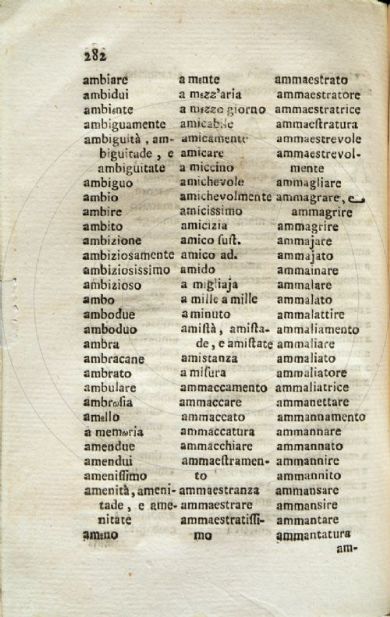 282
ambiare
ambidui
ambiente
ambiguamente
ambiguità, am-
biguitade, e
ambiguitate
ambiguo
ambio
ambire
ambito
ambizione
ambiziosamente
ambiziosissimo
ambizioso
ambo
ambodue
amboduo
ambra
ambracane
ambrato
ambulare
ambrosia
amello
a memoria
amendue
amendui
ameniſſimo
amenità, ameni-
tade, e ame-
nitate
amino
a mente
a mezz'aria
a mezzo giorno
amicabile
amicamente
amicare
a miccino
amichevole
amichevolmente
amicissimo
amicizia
amico ſuſt.
amico ad.
amido
a migliaja
a mille a mille
a minuto
amiſtà, amiſta-
de, e amiſtate
amistanza
a miſura
ammaccamento
ammaccare
ammaccato
ammaccatura
ammacchiare
ammaeſtramen-
to
ammaestranza
ammaestrare
ammaestratiſſi-
mo
ammaestrato
ammaestratore
ammaestratrice
ammaeſtratura
ammaestrevole
ammaestrevol-
mente
ammagliare
ammagrare, e
ammagrire
ammagrire
ammajare
ammajato
ammainare
ammalare
ammalato
ammalattire
ammaliamento
ammaliare
ammaliato
ammaliatore
ammaliatrice
ammanettare
ammannamento
ammannare
ammannato
ammannire
ammannito
ammansare
ammansire
ammantare
ammantatura
am-